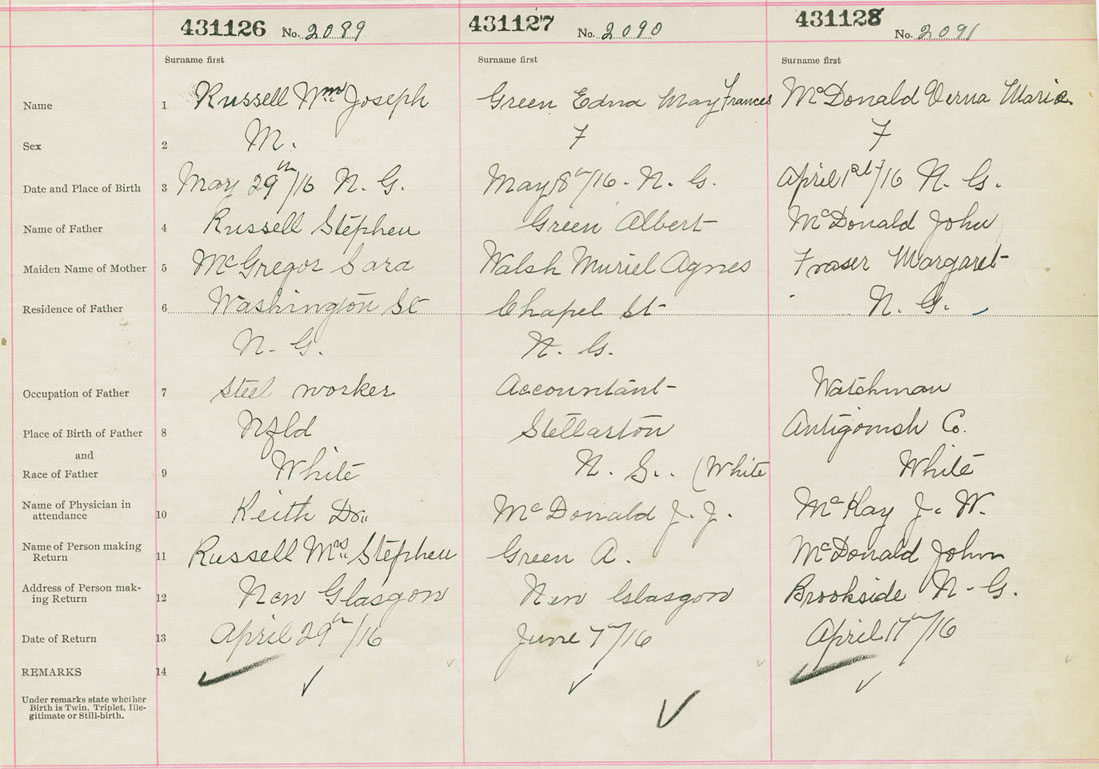 431126 No. 2089 431127 No. 2090 431128 No. 2091
Surname first Surname first Surname first
Name 1 Russell Wm Joseph Green Edna May Frances McDonald Verna Marie
Sex 2 M. F F
Date and Place of Birth 3 May 29th/16 N. G. May 8th/16. N. G. April 1st/16 N. G.
Name of Father 4 Russell Stephen Green Albert McDonald John
Maiden Name of Mother 5 McGregor Sara Walsh Muriel Agnes Fraser Margaret
Residence of Father 6 Washington St Chapel St N. G.
N. G. N. G.
Occupation of Father 7 Steel worker Accountant Watchman
Place of Birth of Father 8 Nfld Stellarton Antigonish Co.
and
Race of Father 9 White N. S.. (White White
Name of Physician in
attendance 10 Keith Dr. McDonald J. J. McKay J. W.
Name of Person making
Return 11 Russell Mrs Stephen Green A. McDonald John
Address of Person mak-
ing Return 12 New Glasgow New Glasgow Brookside N-G.
Date of Return 13 April 29th/16 June 7th/16 April 17th/16
REMARKS 14
Under remarks state whether
Birth is Twin, Triplet, Ille-
gitimate or Still-birth.